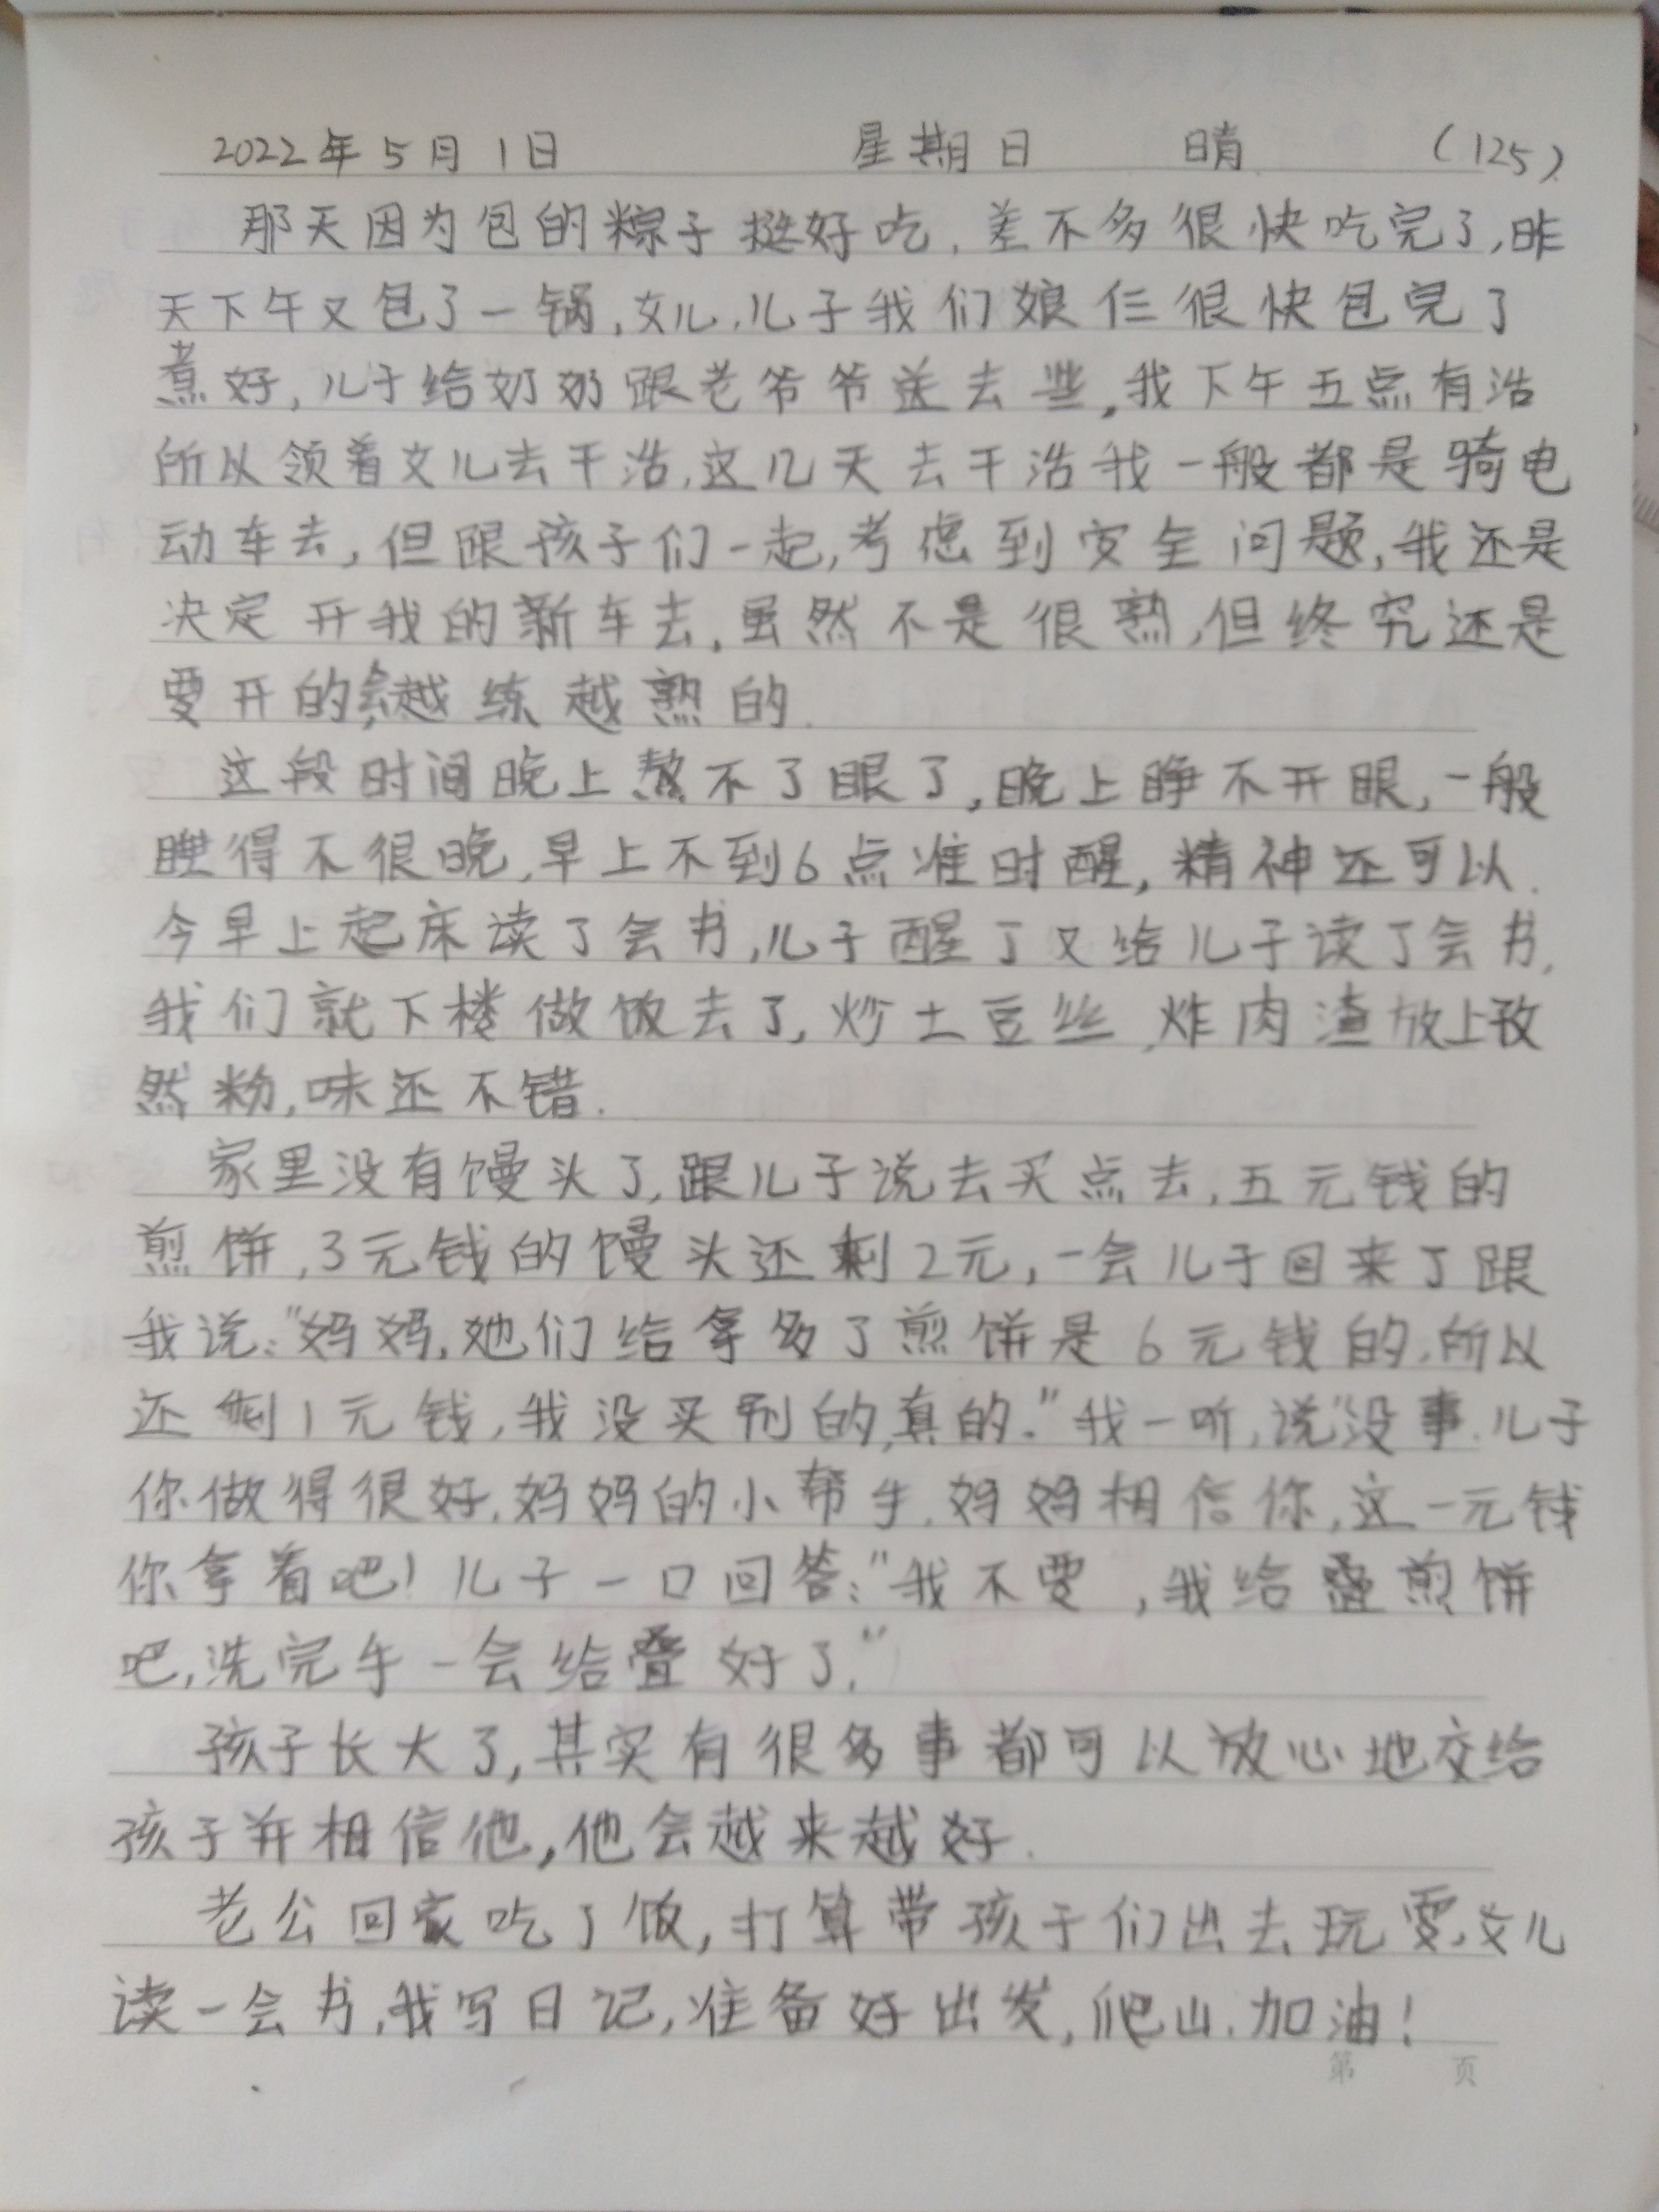 2022年5月1日 星期日 晴 (125)
那天因为包的粽子挺好吃,差不多很快吃完了,昨
天下午又包了一锅,女儿.儿子我们娘仨很快包完了
煮好,儿子给奶奶跟老爷爷送去些,我下午五点有活
所以领着女儿去干活,这几天去干活我一般都是骑电
动车去,但跟孩子们一起,考虑到安全问题,我还是
决定开我的新车去,虽然不是很熟,但终究还是
要开的,会越练越熟的.
这段时间晚上熬不了眼了,晚上睁不开眼,一般
睡得不很晚,早上不到6点准时醒,精神还可以.
今早上起床读了会书,儿子醒了又给儿子读了会书,
我们就下楼做饭去了,炒土豆丝,炸肉渣放上孜
然粉,味还不错.
家里没有馒头了,跟儿子说去买点去,五元钱的
煎饼,3元钱的馒头还剩2元,一会儿子回来了跟
我说:"妈妈,她们给拿多了煎饼是6元钱的.所以
还剩1元钱,我没买别的,真的."我一听,说"没事.儿子
你做得很好,妈妈的小帮手.妈妈相信你,这一元钱
你拿着吧!儿子一口回答:"我不要,我给叠煎饼
吧,洗完手一会给叠好了."
孩子长大了,其实有很多事都可以放心地交给
孩子并相信他,他会越来越好.
老公回家吃了饭,打算带孩子们出去玩耍,女儿
读一会书,我写日记,准备好出发,爬山.加油!
第 页